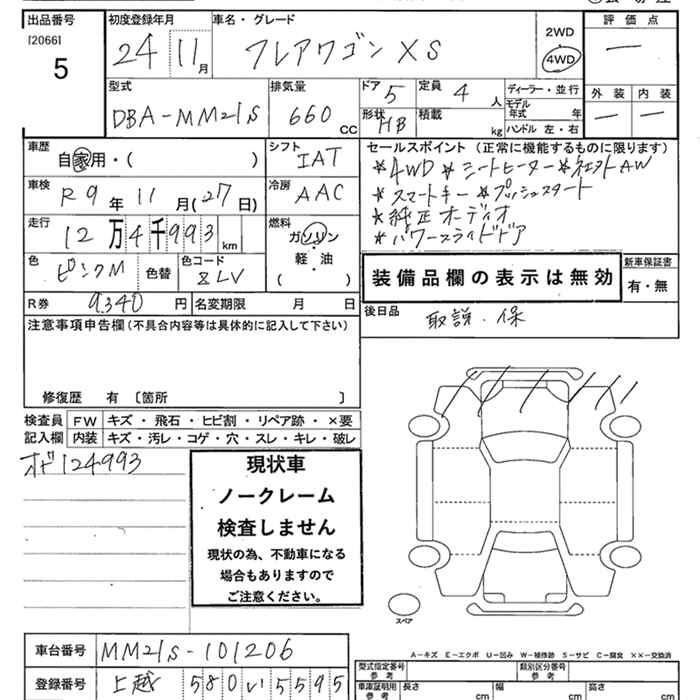 出品番号 初度登録年月 車名・グレード 評価点
[2066] 5 24 11月 フレアワゴン XS 2WD 4WD ー
型式 排気量 ドア 5 定員 4人 ディーラー・並行 外装 内装
DBA-MM21S 660cc 形状 HB 積載 kg モデル年式 年 ハンドル 左・右 ー ー
車歴 自家用・( ) シフト IAT セールスポイント (正常に機能するものに限ります)
車検 R9年11月(27日) 冷房 AAC
*4WD *シートヒーター *社外AW
*スマートキー *プッシュスタート
*純正オーディオ
*パワースライドドア
走行 12万4千993km 燃料 ガソリン 軽・油 ( )
色 ピンクM 色替 色コード ZLV
装備品欄の表示は無効 新車保証書 有・無
R券 9,340円 名変期限 月 日
後日品 取説・保
注意事項申告欄(不具合内容等は具体的に記入して下さい)
修復歴 有 〔箇所 〕
検査員記入欄 FW キズ・飛石・ヒビ割・リペア跡・×要
内装 キズ・汚レ・コゲ・穴・スレ・キレ・破レ
オド124993
現状車
ノークレーム
検査しません
現状の為、不動車になる
場合もありますので
ご注意ください。
スペア
A-キズ E-エクボ U-凹み W-補修跡 S-サビ C-腐食 ××-交換済
車台番号 MM21S-101206
型式指定番号 参考 類別区分番号 参考
登録番号 上越 580 い 5595
車庫証明用 参考 長さ cm 幅 cm 高さ cm